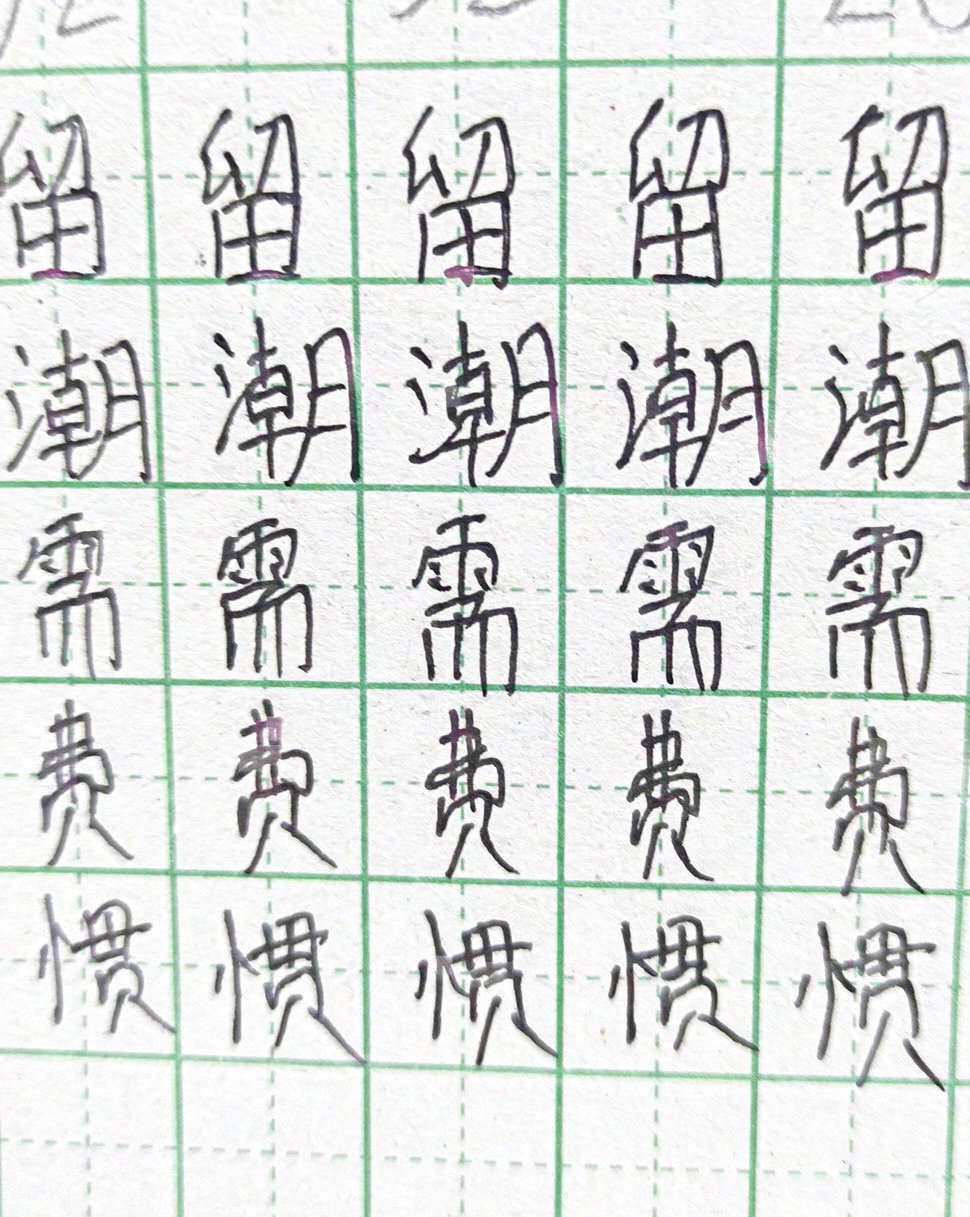 留留留留留
潮潮潮潮潮
需需需需需
费费费费费
惯惯惯惯惯